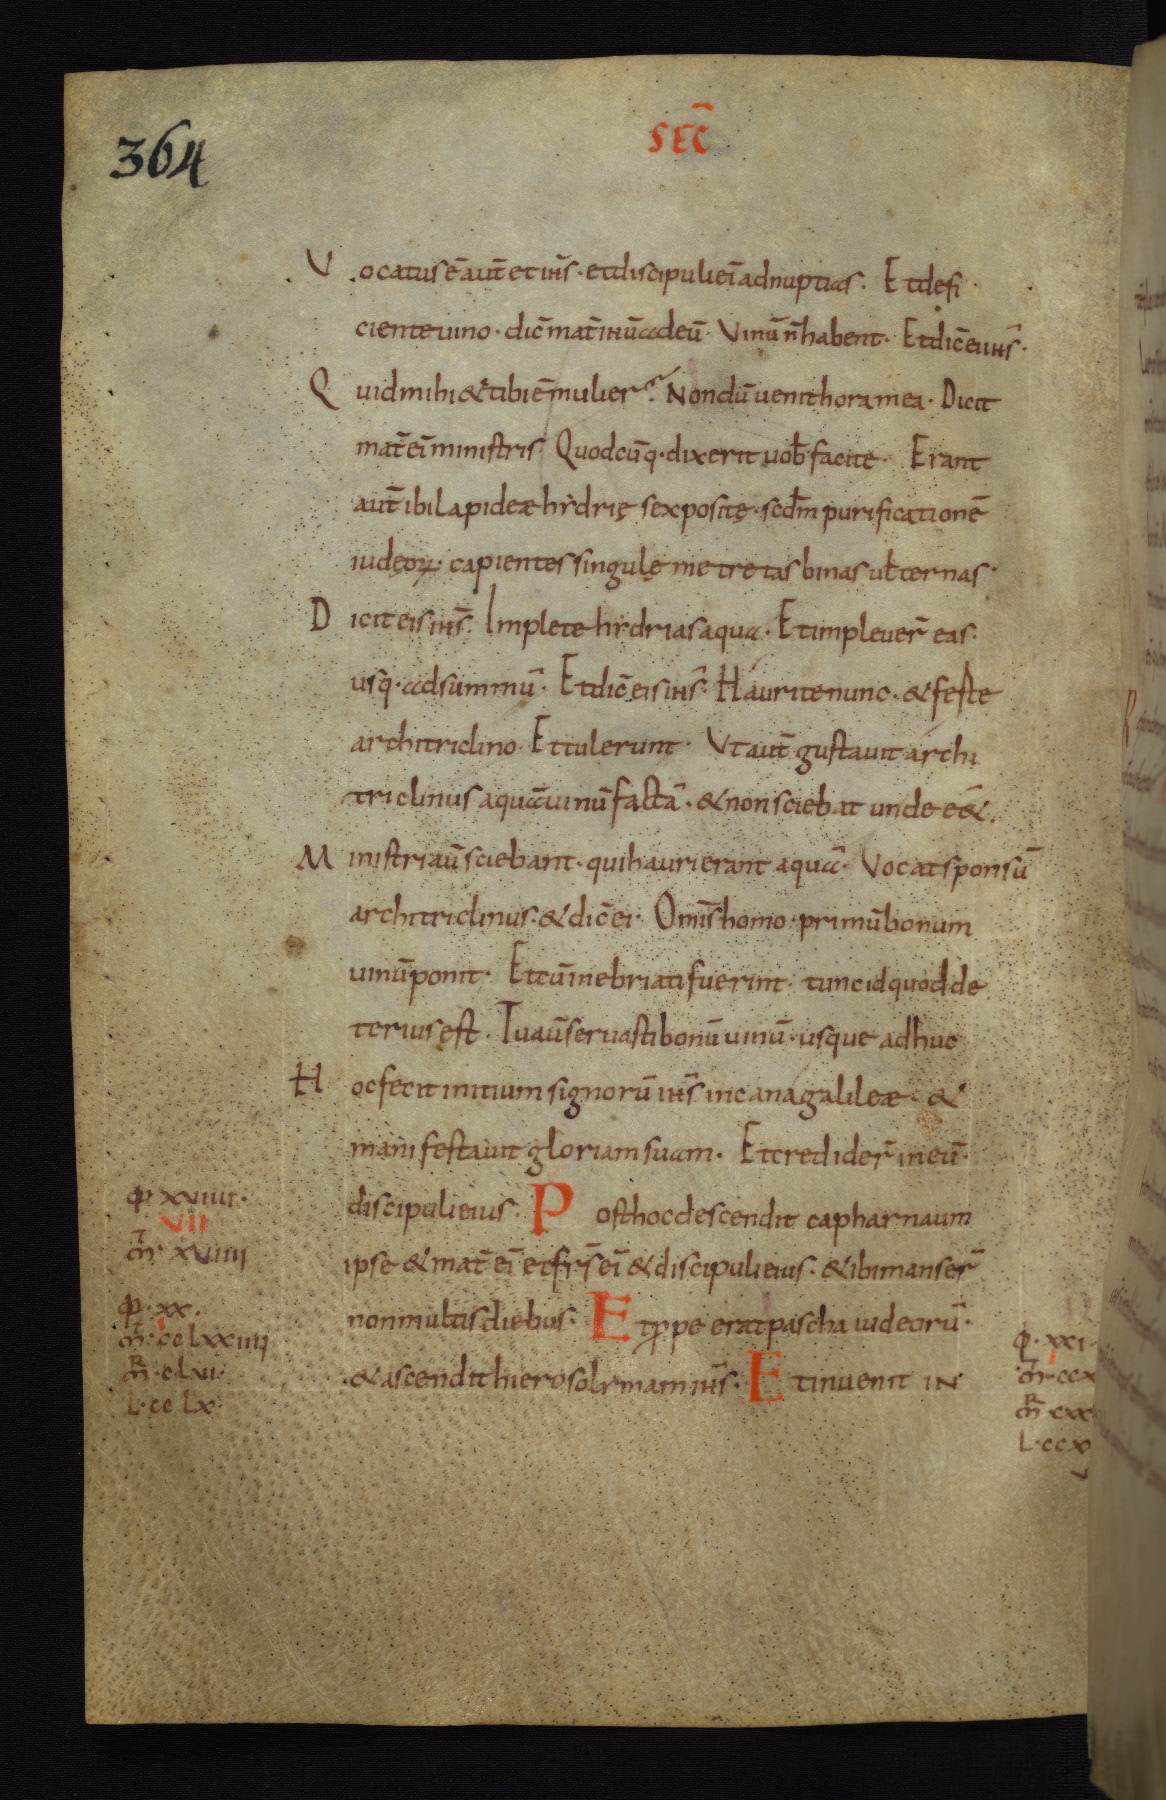 364
SEC̄
Vocatus ē aut̄ et ih̄s · et discipuli ei̅ ad nuptias · Et defi
ciente vino · dic̄ mat̄ ih̄u ad eū · Vinū n̄ habent · Et dic̄ ei ih̄s ·
Quid mihi & tibi ē mulier? Nondū venit hora mea · Dicit
mat̄ ei̅ ministris · Quodcūq · dixerit vob̄ facite · Erant
aut̄ ibi lapideæ hẏdrię sex positę · scd̄m purificationē
iudęoꝝ · capientes singulę metretas binas vl̄ ternas ·
Dicit eis ih̄s · Implete hẏdrias aqua · Et impleuer̄ eas ·
usq · ad summū · Et dic̄ eis ih̄s · Haurite nunc · & ferte
architriclino · Et tulerunt · Vt aut̄ gustauit archi
triclinus aquā uinū factā · & non sciebat unde eēt ·
Ministri aū sciebant · qui haurierant aquā · Vocat sponsū
architriclinus · & dic̄ ei · Omīs homo · primū bonum
uinū ponit · Et cū inebriati fuerint · tunc id quod de
terius est · Tu aū seruasti bonū uinū · usque adhuc
Hoc fecit initium signorū ih̄s in cana galileæ · &
manifestauit gloriam suam · Et credider̄ in eū ·
discipuli eius · Post hoc descendit capharnaum
ipse & mat̄ ei̅ et fr̄s ei̅ & discipuli eius · & ibi manser̄
non multis diebus · Et ꝓpe erat pascha iudeorū ·
· & ascendit hierosolẏmam ih̄s · Et inuenit in
XVIIII ·
VII
m̄ XVIIII
· XX ·
I
m̄ · CCLXXIIII
m̄ · CLVI ·
L · CCLX ·
· XXI ·
I
m̄ · CCX
m̄ · CXX
L · CCX